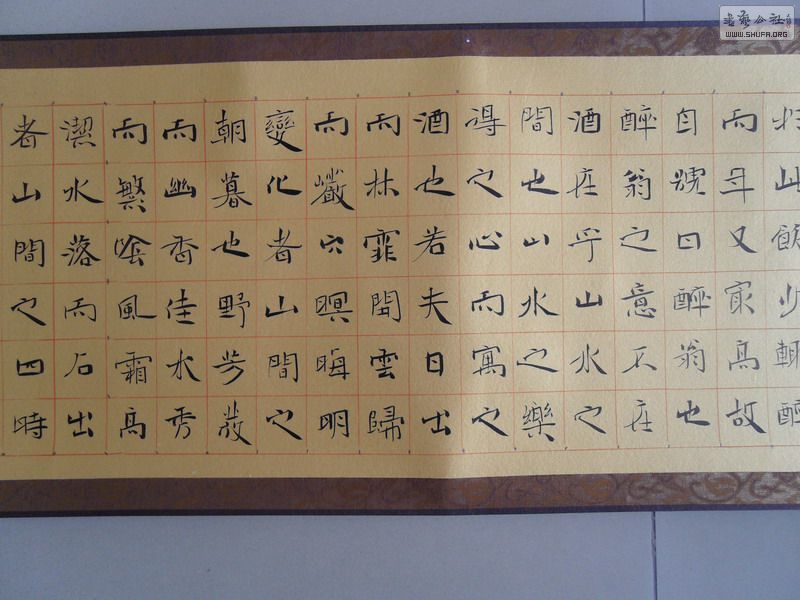 於此飲少輒醉
而年又最高故
自號曰醉翁也
醉翁之意不在
酒在乎山水之
間也山水之樂
得之心而寓之
酒也若夫日出
而林霏開雲歸
而巖穴暝晦明
變化者山間之
朝暮也野芳發
而幽香佳木秀
而繁陰風霜高
潔水落而石出
者山間之四時
書藝公社
WWW.SHUFA.ORG